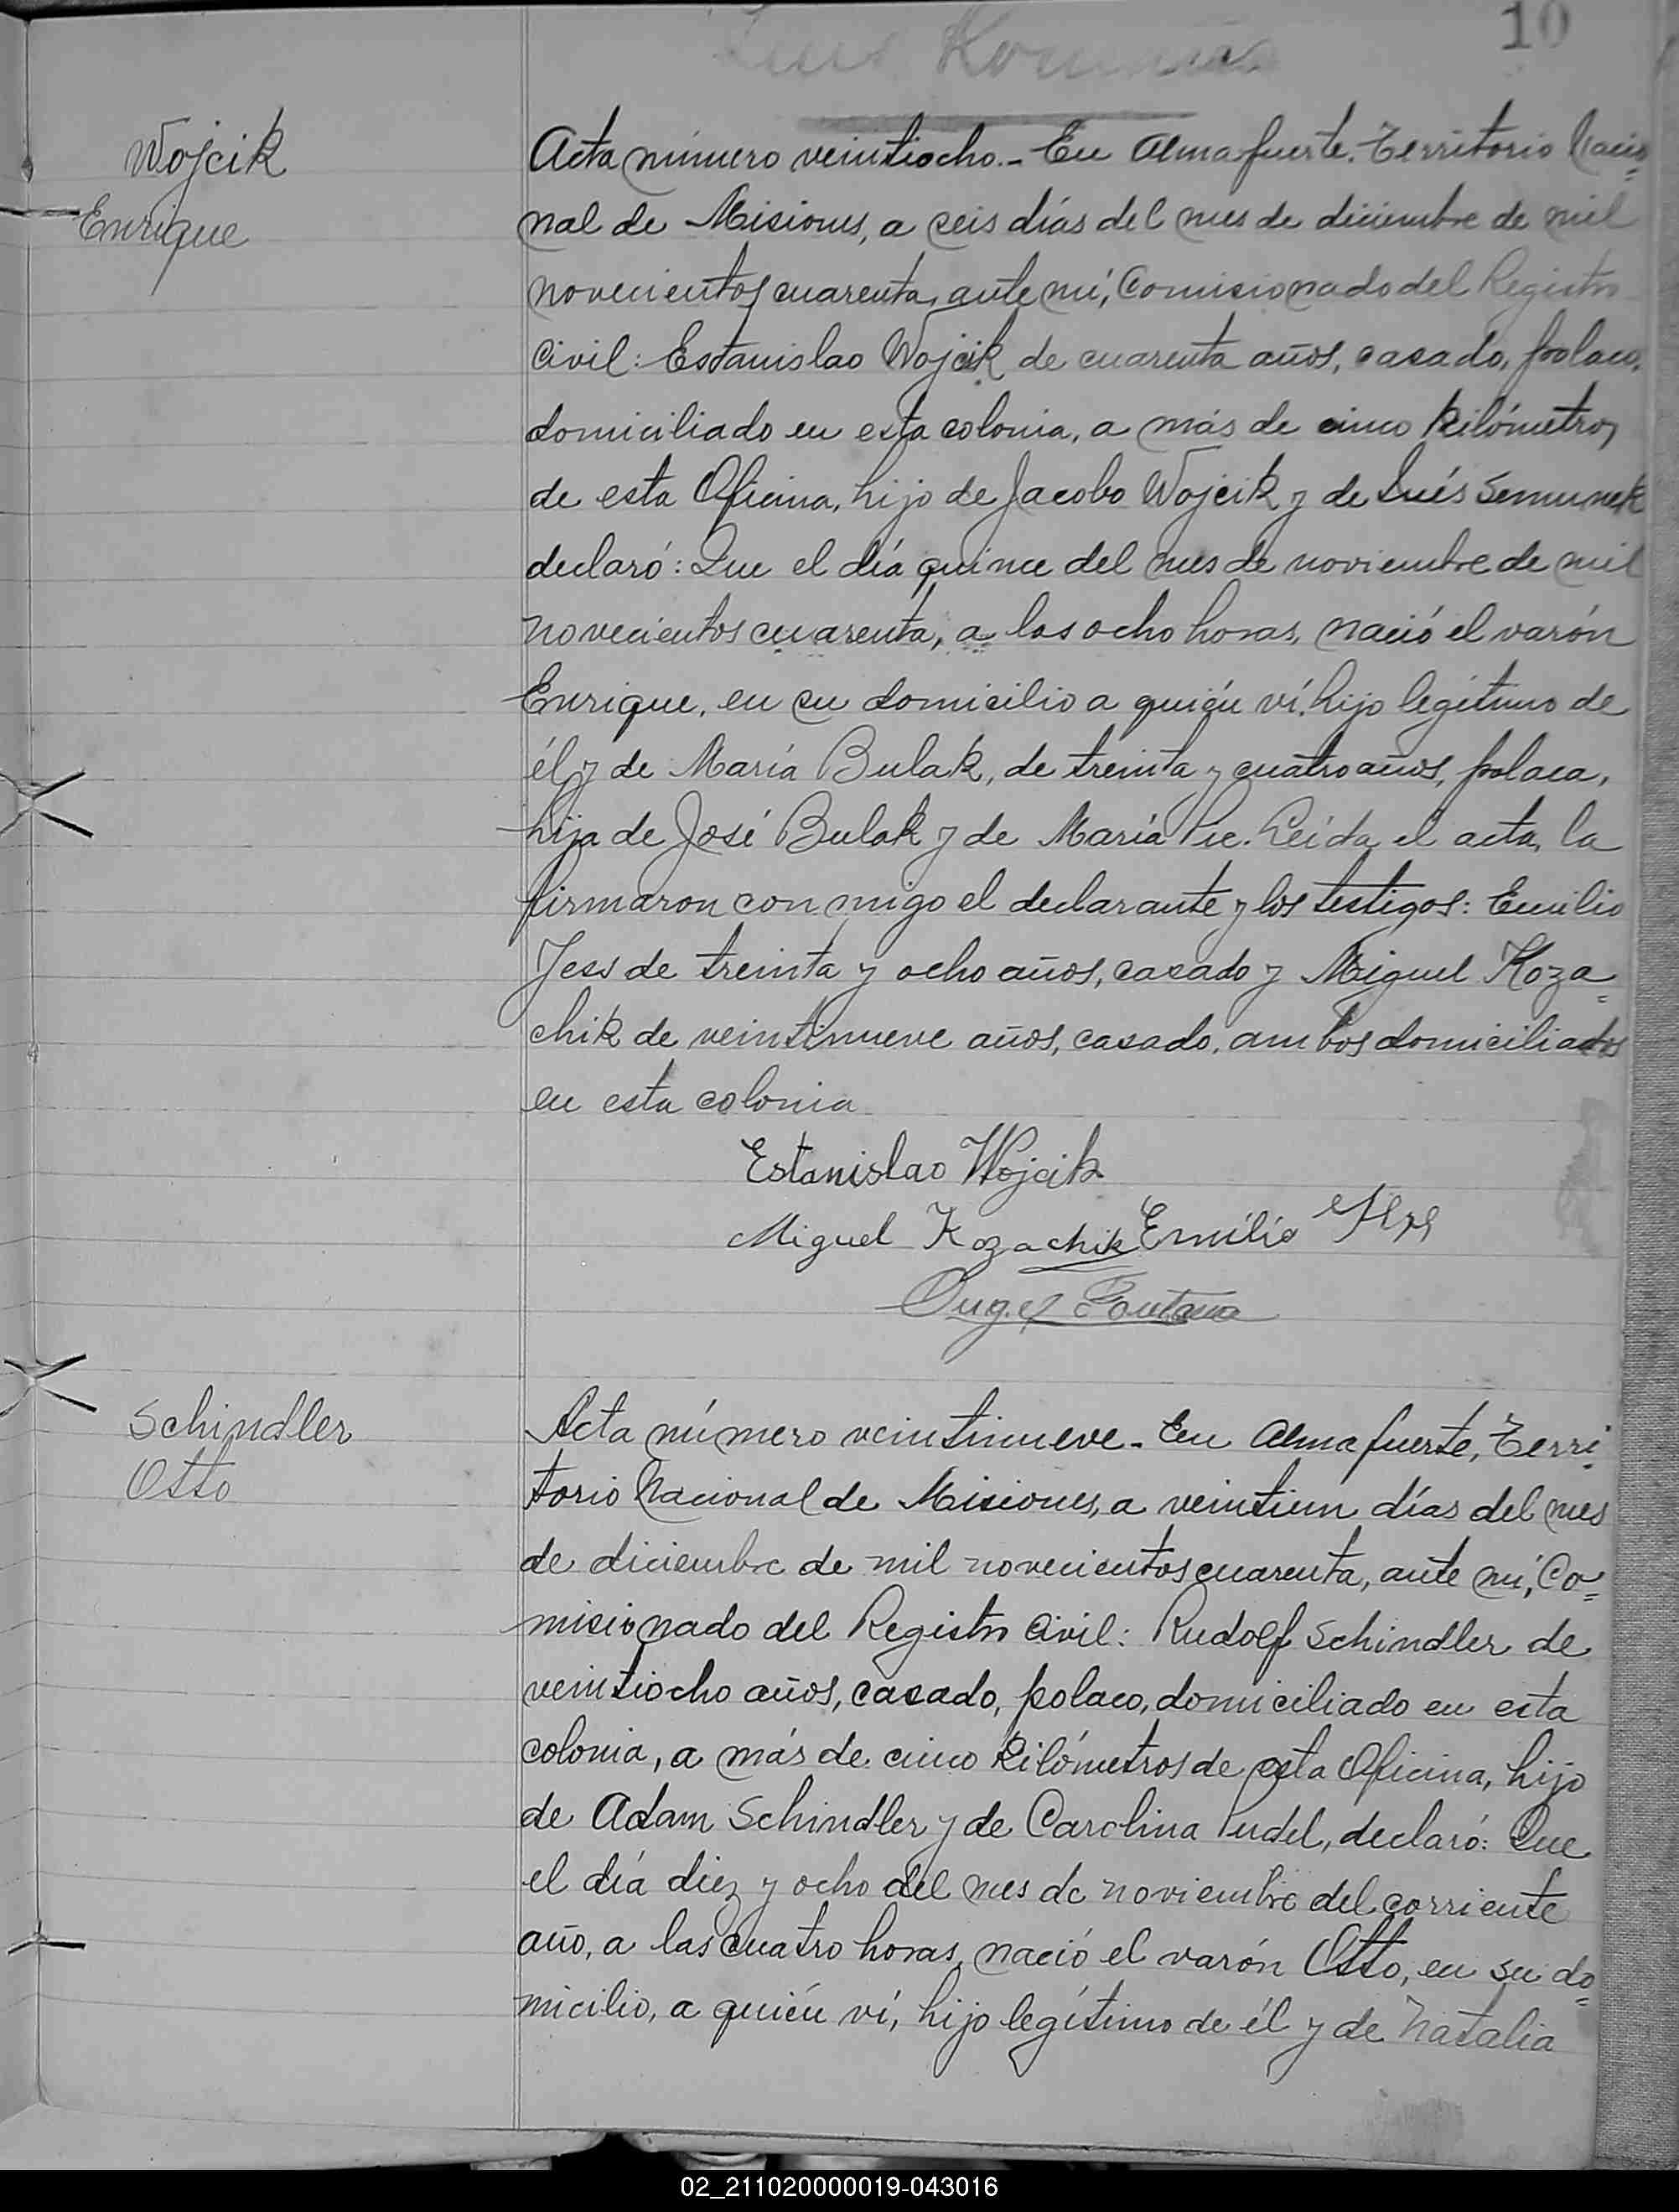 10
Wojcik
Enrique
Acta número veintiocho.- En Almafuerte. Territorio Nacio=
nal de Misiones, a seis días del mes de diciembre de mil
novecientos cuarenta, ante mí, Comisionado del Registro
Civil: Estanislao Wojcik de cuarenta años, casado, polaco,
domiciliado en esta colonia, a más de cinco kilómetros
de esta Oficina, hijo de Jacobo Wojcik y de Inés Semunek
declaró: Que el día quince del mes de noviembre de mil
novecientos cuarenta, a las ocho horas, nació el varón
Enrique, en su domicilio a quién ví, hijo legítimo de
él y de María Bulak, de treinta y cuatro años, polaca,
hija de José Bulak y de María Pie. Leída el acta, la
firmaron con migo el declarante y los testigos: Emilio
Jess de treinta y ocho años, casado y Miguel Koza=
chik de veintinueve años, casado, ambos domiciliados
en esta colonia
Estanislao Wojcik
Miguel Kozachik Emilio
Angel Fontana
Schindler
Otto
Acta número veintinueve.- En Almafuerte, Terri=
torio Nacional de Misiones, a veintiun días del mes
de diciembre de mil novecientos cuarenta, ante mí, Co=
misionado del Registro Civil: Rudolf Schindler de
veintiocho años, casado, polaco, domiciliado en esta
colonia, a más de cinco kilómetros de esta Oficina, hijo
de Adam Schindler y de Carolina Pudel, declaró: Que
el día diez y ocho del mes de noviembre del corriente
año, a las cuatro horas, nació el varón Otto, en su do=
micilio, a quién ví, hijo legítimo de él y de Natalia
02_211020000019-043016